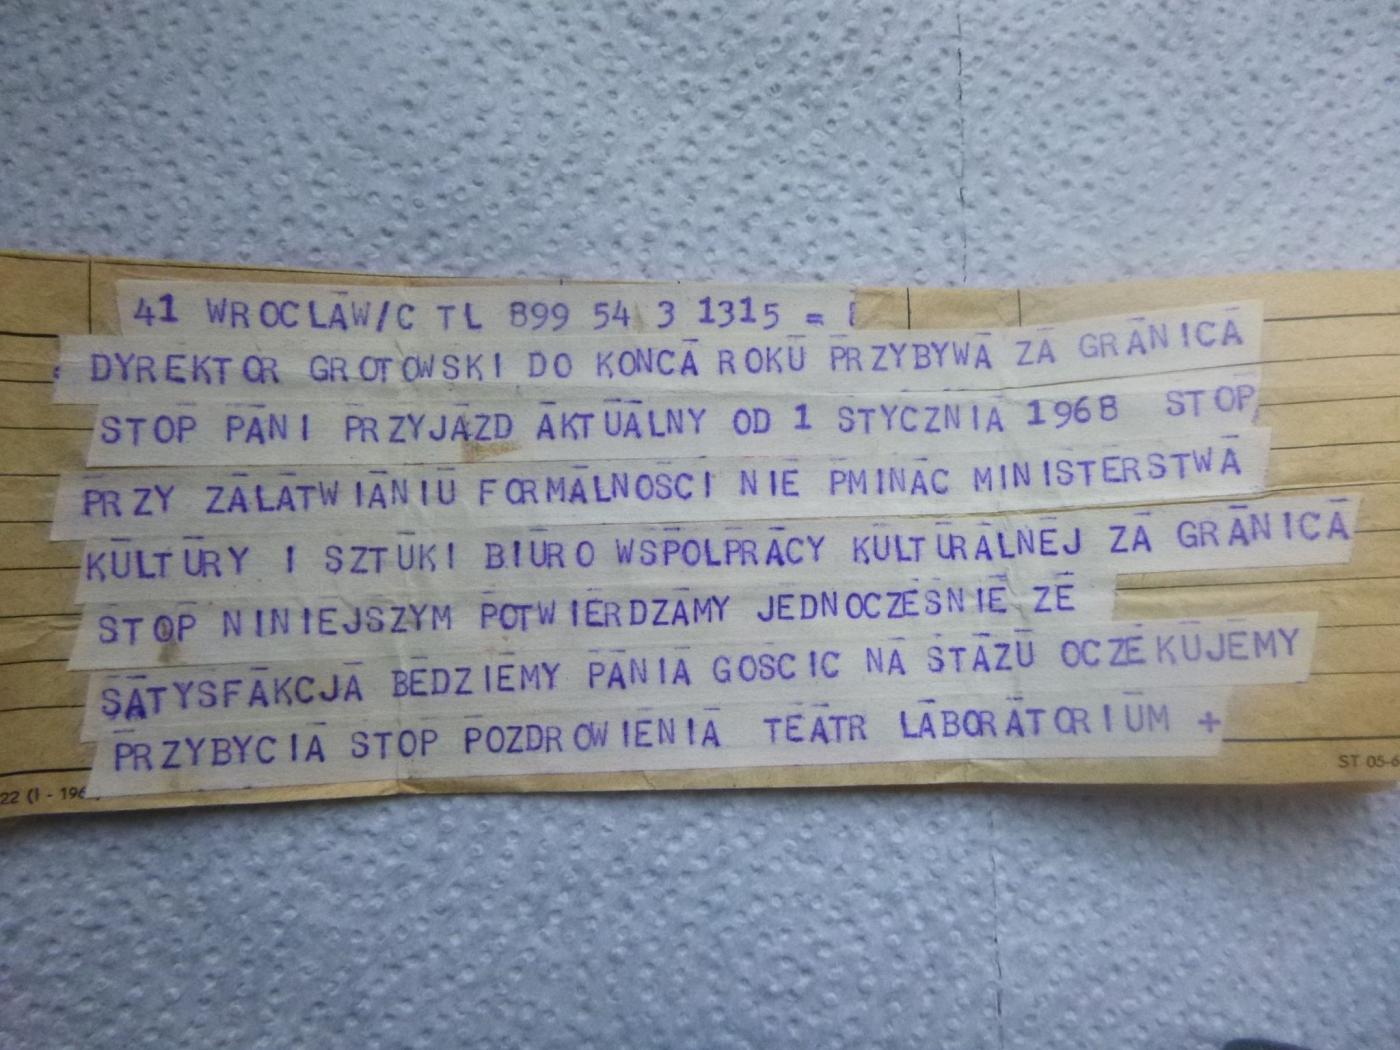 41 WROCLAW/C TL 899 54 3 1315 =
DYREKTOR GROTOWSKI DO KONCA ROKU PRZYBYWA ZA GRANICA
STOP PANI PRZYJAZD AKTUALNY OD 1 STYCZNIA 1968 STOP
PRZY ZALATWIANIU FORMALNOSCI NIE PMINAC MINISTERSTWA
KULTURY I SZTUKI BIURO WSPOLPRACY KULTURALNEJ ZA GRANICA
STOP NINIEJSZYM POTWIERDZAMY JEDNOCZESNIE ZE
SATYSFAKCJA BEDZIEMY PANIA GOSCIC NA STAZU OCZEKUJEMY
PRZYBYCIA STOP POZDROWIENIA TEATR LABORATORIUM +
22 (I - 196
ST 05-6